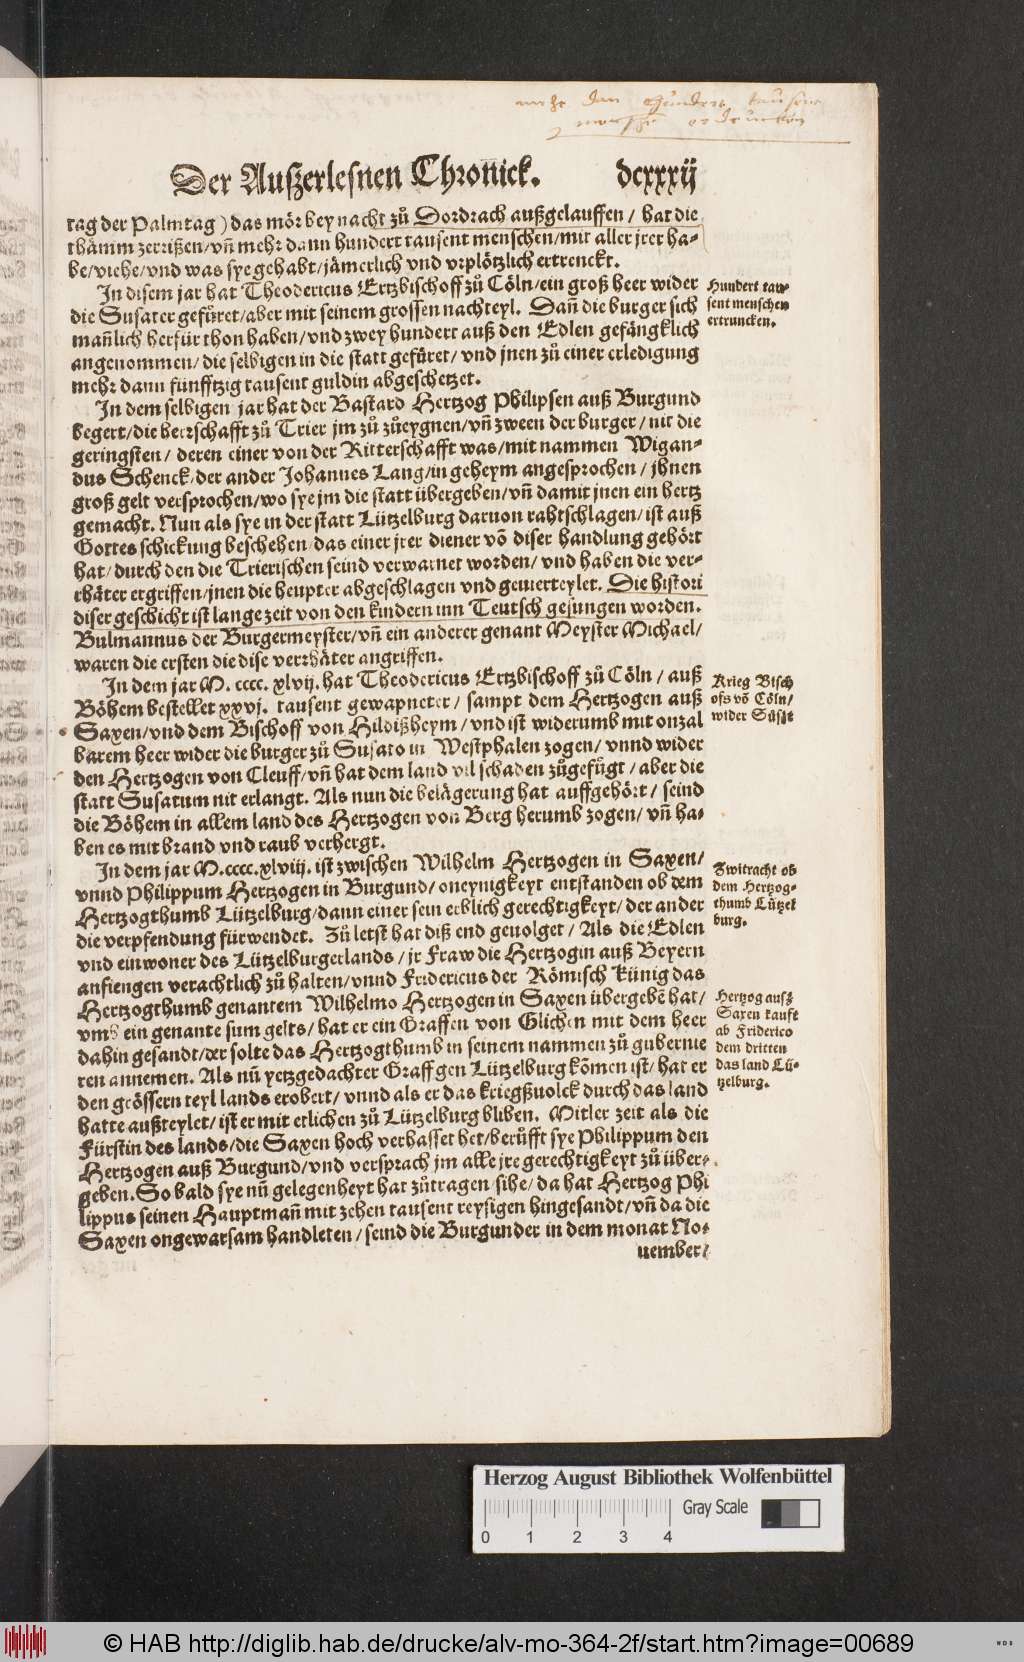 Der Außerlesnen Chroñick. dcxxxij
tag der Palmtag) das mör bey nacht zů Dordrach außgelauffen / hat die
thämm zerrißen / vñ mehr dann hundert tausent menschen / mit aller jrer ha-
be / viehe / vnd was sye gehabt / jämerlich vnd vrplötzlich ertrenckt.
In disem jar hat Theodericus Ertzbischoff zů Cöln / ein groß heer wider
die Susater gefüret / aber mit seinem grossen nachteyl. Dañ die burger sich
mañlich herfür thon haben / vnd zwey hundert auß den Edlen gefängklich
angenommen / die selbigen in die statt gefüret / vnd jnen zů einer erledigung
mehr dann fünfftzig tausent guldin abgeschetzet.
Hundert tau-
sent menschen
ertruncken.
In dem selbigen jar hat der Bastard Hertzog Philipsen auß Burgund
begert / die herrschafft zů Trier jm zů zůeygnen / vñ zween der burger / nit die
geringsten / deren einer von der Ritterschafft was / mit nammen Wigan-
dus Schenck / der ander Johannes Lang / in geheym angesprochen / jhnen
groß gelt versprochen / wo sye jm die statt übergeben / vñ damit jnen ein hertz
gemacht. Nun als sye in der statt Lützelburg daruon rahtschlagen / ist auß
Gottes schickung beschehen / das einer jrer diener võ diser handlung gehört
hat / durch den die Trierischen seind verwarnet worden / vnd haben die ver-
rhäter ergriffen / jnen die heupter abgeschlagen vnd geuierteylet. Die histori
diser geschicht ist lange zeit von den kindern inn Teutsch gesungen worden.
Bulmannus der Burgermeyster / vñ ein anderer genant Meyster Michael /
waren die ersten die dise verrhäter angriffen.
In dem jar M. cccc. xlvij. hat Theodericus Ertzbischoff zů Cöln / auß
Böhem bestellet xxvj. tausent gewapneter / sampt dem Hertzogen auß
Saxen / vnd dem Bischoff von Hildißheym / vnd ist widerumb mit onzal
barem heer wider die burger zů Susato in Westphalen zogen / vnnd wider
den Hertzogen von Cleuff / vñ hat dem land vil schaden zůgefügt / aber die
statt Susatum nit erlangt. Als nun die belägerung hat auffgehört / seind
die Böhem in allem land des Hertzogen von Berg herumb zogen / vñ ha-
ben es mit brand vnd raub verhergt.
Krieg Bisch
offs võ Cöln /
wider Süsat
In dem jar M.cccc.xlviij. ist zwischen Wilhelm Hertzogen in Saxen /
vnnd Philippum Hertzogen in Burgund / oneynigkeyt entstanden ob dem
Hertzogthumb Lützelburg / dann einer sein erblich gerechtigkeyt / der ander
die verpfendung fürwendet. Zů letst hat diß end geuolget / Als die Edlen
vnd einwoner des Lützelburgerlands / jr Fraw die Hertzogin auß Beyern
anfiengen verachtlich zů halten / vnnd Fridericus der Römisch künig das
Hertzogthumb genantem Wilhelmo Hertzogen in Saxen übergebē hat /
vmb ein genante sum gelts / hat er ein Graffen von Glichen mit dem heer
dahin gesandt / der solte das Hertzogthumb in seinem nammen zů gubernie
ren annemen. Als nů yetzgedachter Graff gen Lützelburg kõmen ist / hat er
den grössern teyl lands erobert / vnnd als er das kriegßuolck durch das land
hatte außteylet / ist er mit etlichen zů Lützelburg bliben. Mitler zeit als die
Fürstin des lands / die Saxen hoch verhasset het / berůfft sye Philippum den
Hertzogen auß Burgund / vnd versprach jm alle jre gerechtigkeyt zů über-
geben. So bald sye nů gelegenheyt hat zůtragen / sihe / da hat Hertzog Phi
lippus seinen Hauptmañ mit zehen tausent reysigen hingesandt / vñ da die
Saxen ongewarsam handleten / seind die Burgunder in dem monat No-
uember /
Zwitracht ob
dem Hertzog-
thumb Lützel
burg.
Hertzog ausz
Saxen kauft
ab Friderico
dem dritten
das land Lü-
tzelburg.
Herzog August Bibliothek Wolfenbüttel
Gray Scale
0 1 2 3 4
© HAB http://diglib.hab.de/drucke/alv-mo-364-2f/start.htm?image=00689